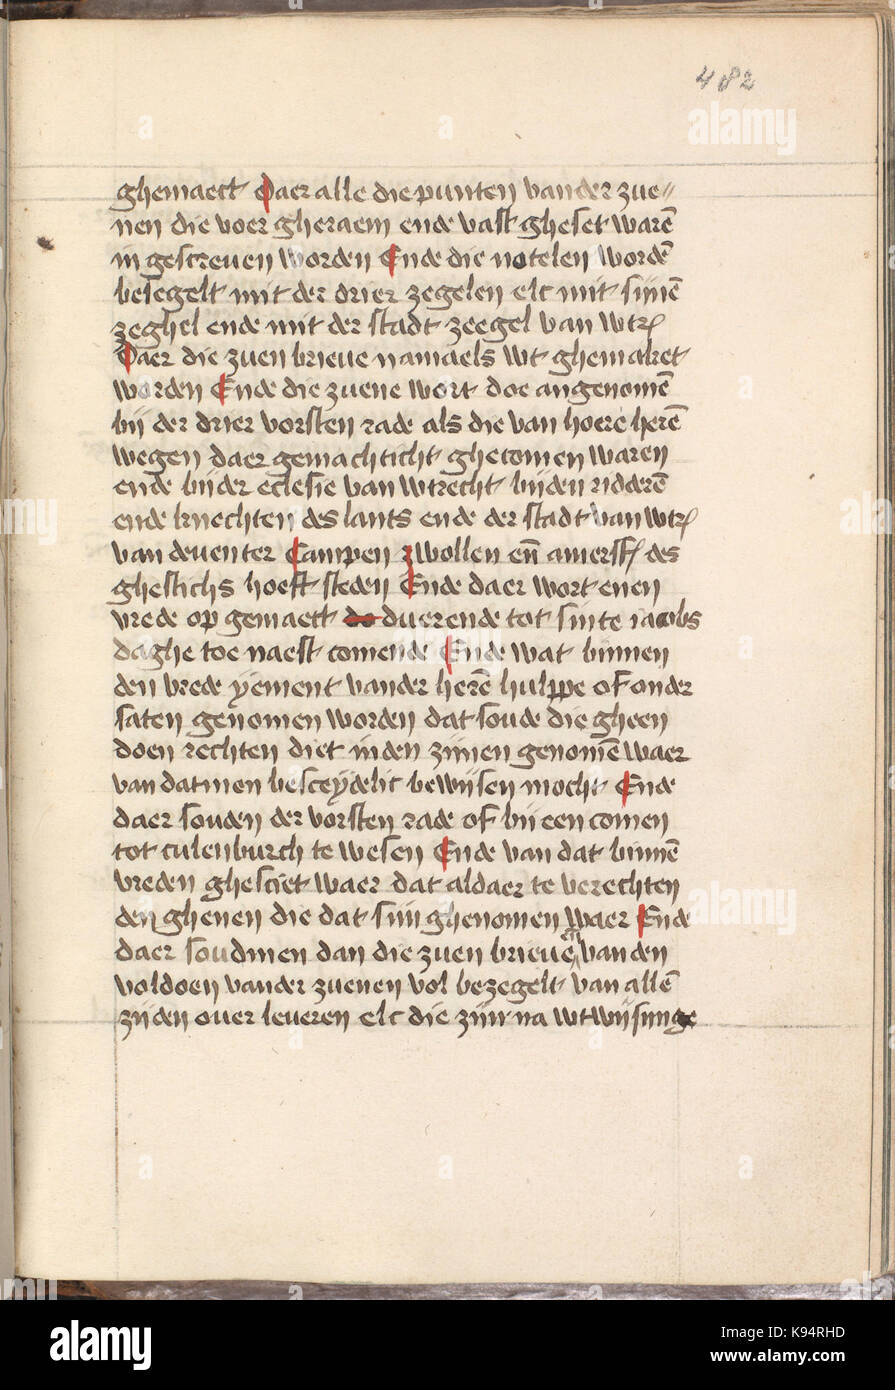 482
ghemaect Daer alle die punten vander zue=
nen die voer gheraem ende vast gheset warē
in gescreuen worden Ende die notelen wordē
besegelt mit der drier zegelen elc mit sijnē
zeghel ende mit der stadt zeegel van wtrꝭ
Daer die zuen brieue namaels wt ghemaket
worden Ende die zuene wort doe angenomē
bij der drier vorsten rade als die van hoere herē
wegen daer gemachticht ghecomen waren
ende bijder eclesie van wtrecht bijden ridderē
ende knechten des lants ende der stadt van wtrꝭ
van deuenter Campen zwollen en̄ amersfꝭ des
ghestichs hoeft steden Ende daer wort enen
vrede op gemaect do duerende tot sinte iacobs
daghe toe naest comende Ende wat binnen
den vrede yement vander herē hulppe of onder
saten genomen worden dat soude die gheen
doen rechten diet inden zijnen genomē waer
van datmen besceydelic bewijsen mocht Ende
daer souden der vorsten rade of bij een comen
tot culenburch te wesen Ende van dat binnē
vreden ghesciet waer dat aldaer te verechten
den ghenen die dat sijn ghenomen waer Ende
daer soudmen dan die zuen brieue van den
voldoen vander zuenen vol bezegelt van allē
zijden ouer leueren elc die zijn na wtwijsinge
alamy
Image ID: K94RHD
www.alamy.com